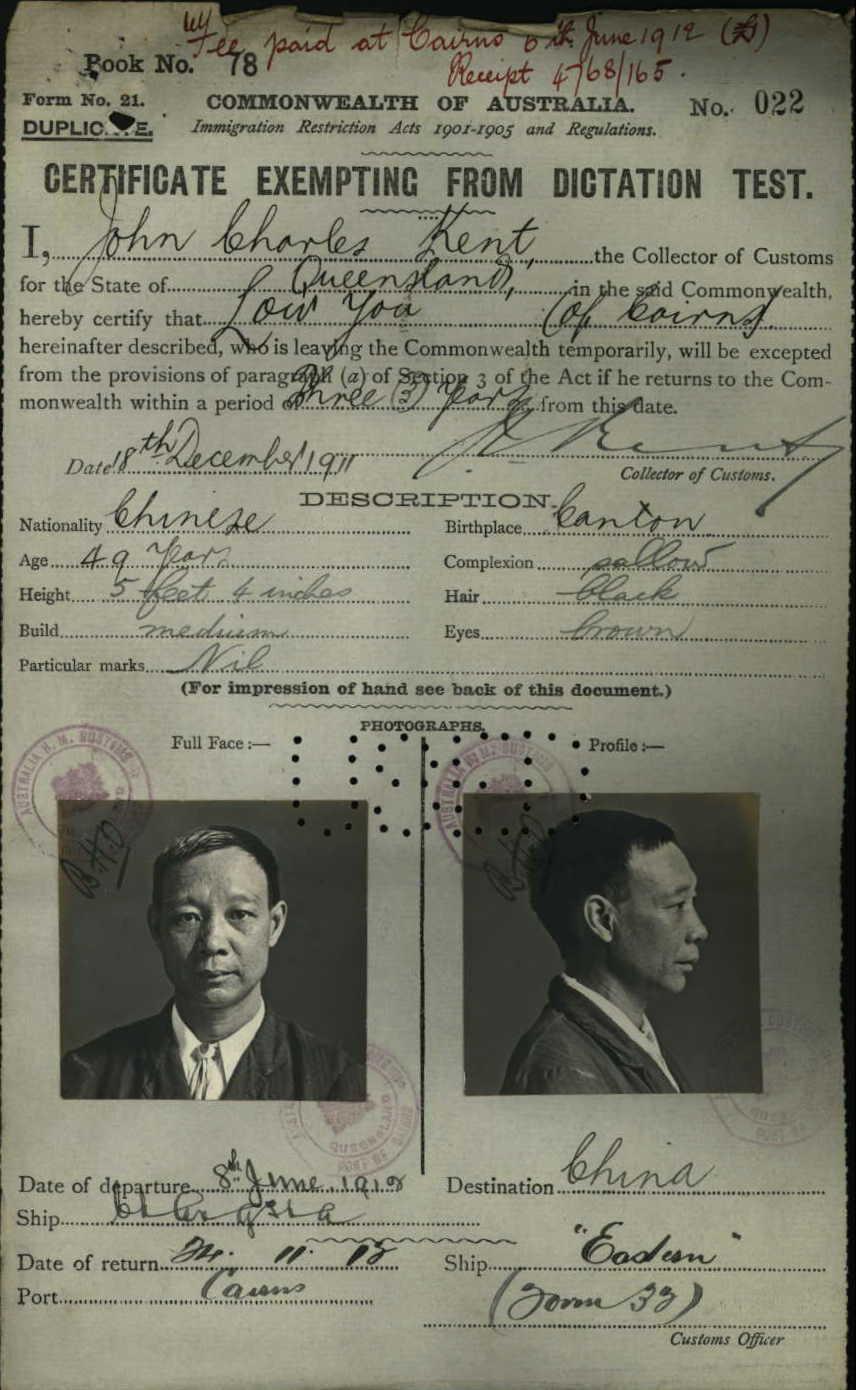 Fee paid at Cairns 6th June 1912
Book No. 78
Receipt 4768/165.
Form No. 21.
COMMONWEALTH OF AUSTRALIA.
No. 022
DUPLIC E.
Immigration Restriction Acts 1901-1905 and Regulations.
CERTIFICATE EXEMPTING FROM DICTATION TEST.
I, John Charles Kent, the Collector of Customs
for the State of Queensland, in the said Commonwealth,
hereby certify that Low You (of Cairns)
hereinafter described, who is leaving the Commonwealth temporarily, will be excepted
from the provisions of paragraph (a) of Section 3 of the Act if he returns to the Com-
monwealth within a period of three (3) years from this date.
Date 18th December 1911
Collector of Customs.
DESCRIPTION.
Nationality Chinese
Birthplace Canton
Age 49 years
Complexion sallow
Height 5 feet 4 inches
Hair black
Build medium
Eyes brown
Particular marks Nil
(For impression of hand see back of this document.)
PHOTOGRAPHS.
Full Face :—
Profile :—
Date of departure 8th June 1912
Destination China
Ship
Date of return 24. 11. 12
Ship "Eastern"
Port Cairns
(Form 32)
Customs Officer